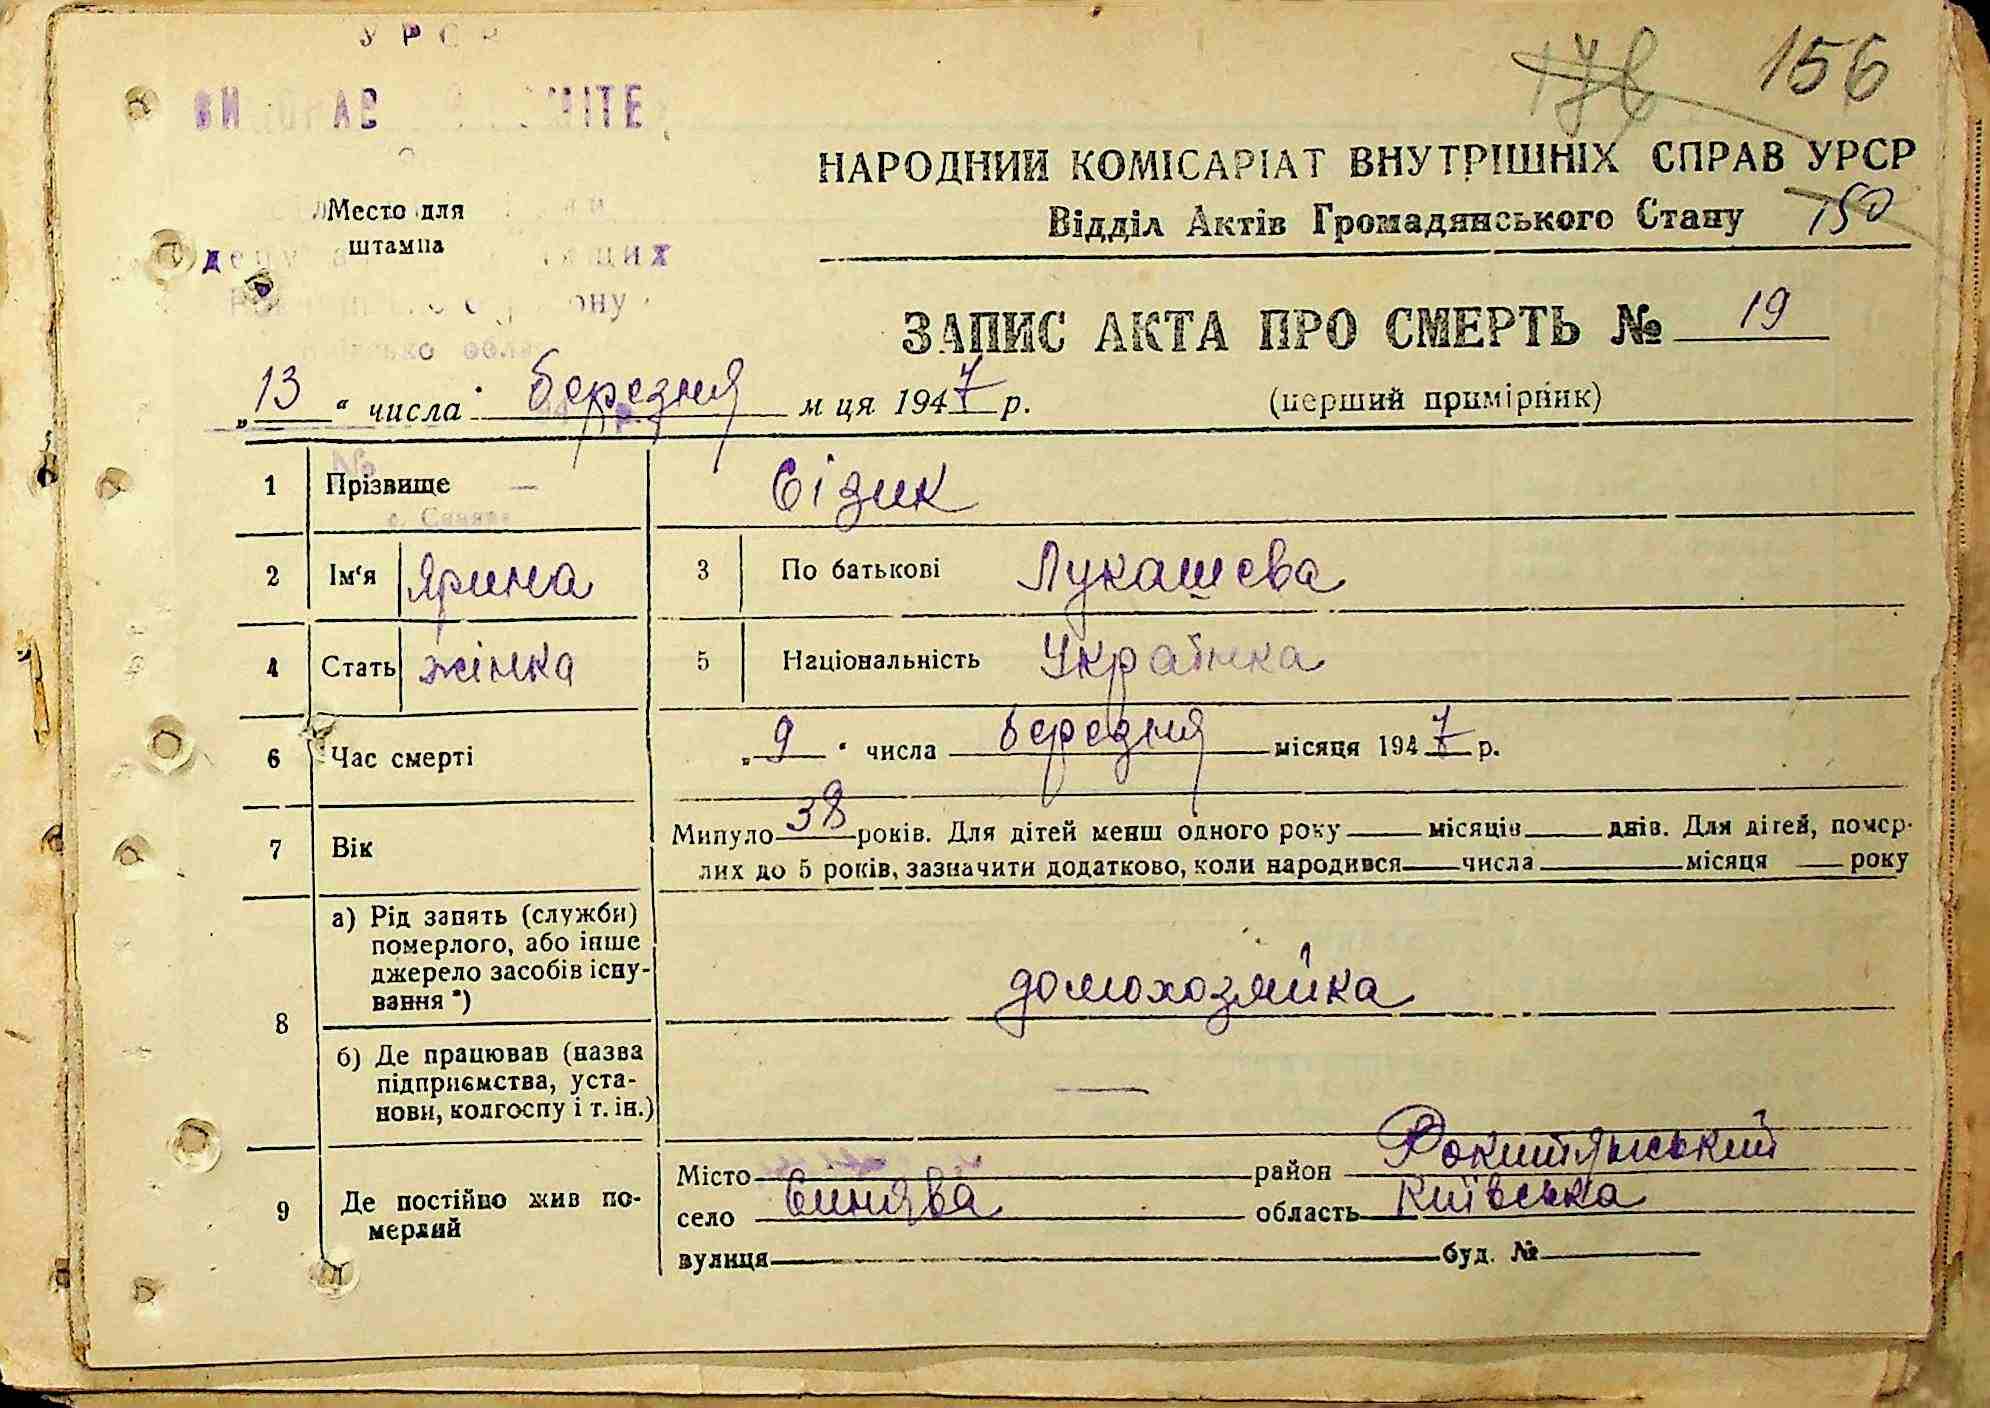 УРСР
156
НАРОДНИЙ КОМІСАРІАТ ВНУТРІШНІХ СПРАВ УРСР
Відділ Актів Громадянського Стану 150
Место для
штампа
ЗАПИС АКТА ПРО СМЕРТЬ № 19
„13“ числа березня м ця 1947 р. (перший примірник)
1 Прізвище Сізик
2 Ім‘я Ярина 3 По батькові Лукашева
4 Стать жінка 5 Національність Українка
6 Час смерті „9“ числа березня місяця 1947 р.
7 Вік Минуло 38 років. Для дітей менш одного року місяців днів. Для дітей, помер-
лих до 5 років, зазначити додатково, коли народився числа місяця року
8 а) Рід занять (служби)
померлого, або інше
джерело засобів існу-
вання *)
домохозяйка
б) Де працював (назва
підприємства, уста-
нови, колгоспу і т. ін.)
—
9 Де постійно жив по-
мерлий
Місто район Рокитянський
село Синява область Київська
вулиця буд. №